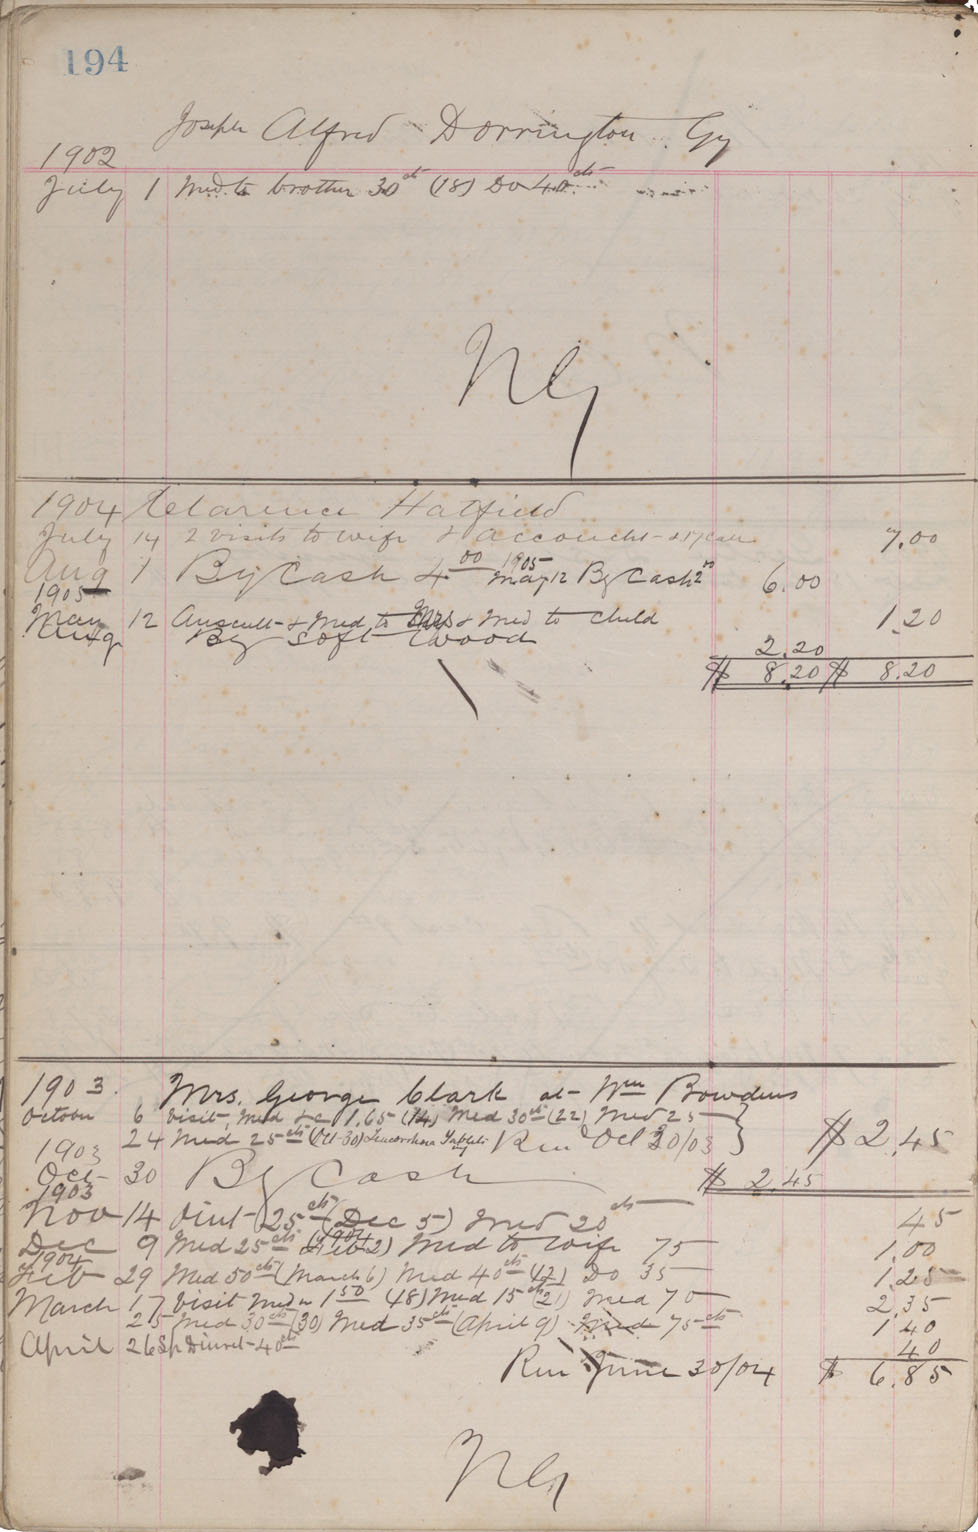 194
Joseph Alfred Dorrington Gy
1902
July 1 Med to brother 30cts (18) Do 40cts
1904 Clarence Hatfield
July 14 2 visits to wife & accoucht 7.00
Aug 1 By Cash 4.00 1905 May 12 By Cash 2.00 6.00
1905
May 12 & Med to Mrs & Med to child 1.20
Aug By Soft Wood 2.20
$ 8.20 $ 8.20
1903. Mrs. George Clark at Wm Bowdens
October 6 Visit, Med &c 1.65 (14) Med 30cts (22) Med 25
24 Med 25cts (Oct 30) Leucorrhoea Tablets Ren Oct 30/03 } $ 2.45
1903
Oct 30 By Cash $ 2.45
1903
Nov 14 Visit 25cts (Dec 5) Med 20cts 45
Dec 9 Med 25cts (1904 Feb 2) Med to wife 75 1.00
1904
Feb 29 Med 50cts (March 6) Med 40cts (12) Do 35 1.25
March 17 Visit Med 1.50 (18) Med 15cts (21) Med 70 2.35
25 Med 30cts (30) Med 35cts (April 9) Med 75cts 1.40
April 26 40cts 40
Ren June 30/04 $ 6.85